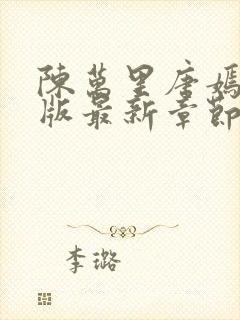 陳萬里唐嫣
版最新章節
李璐